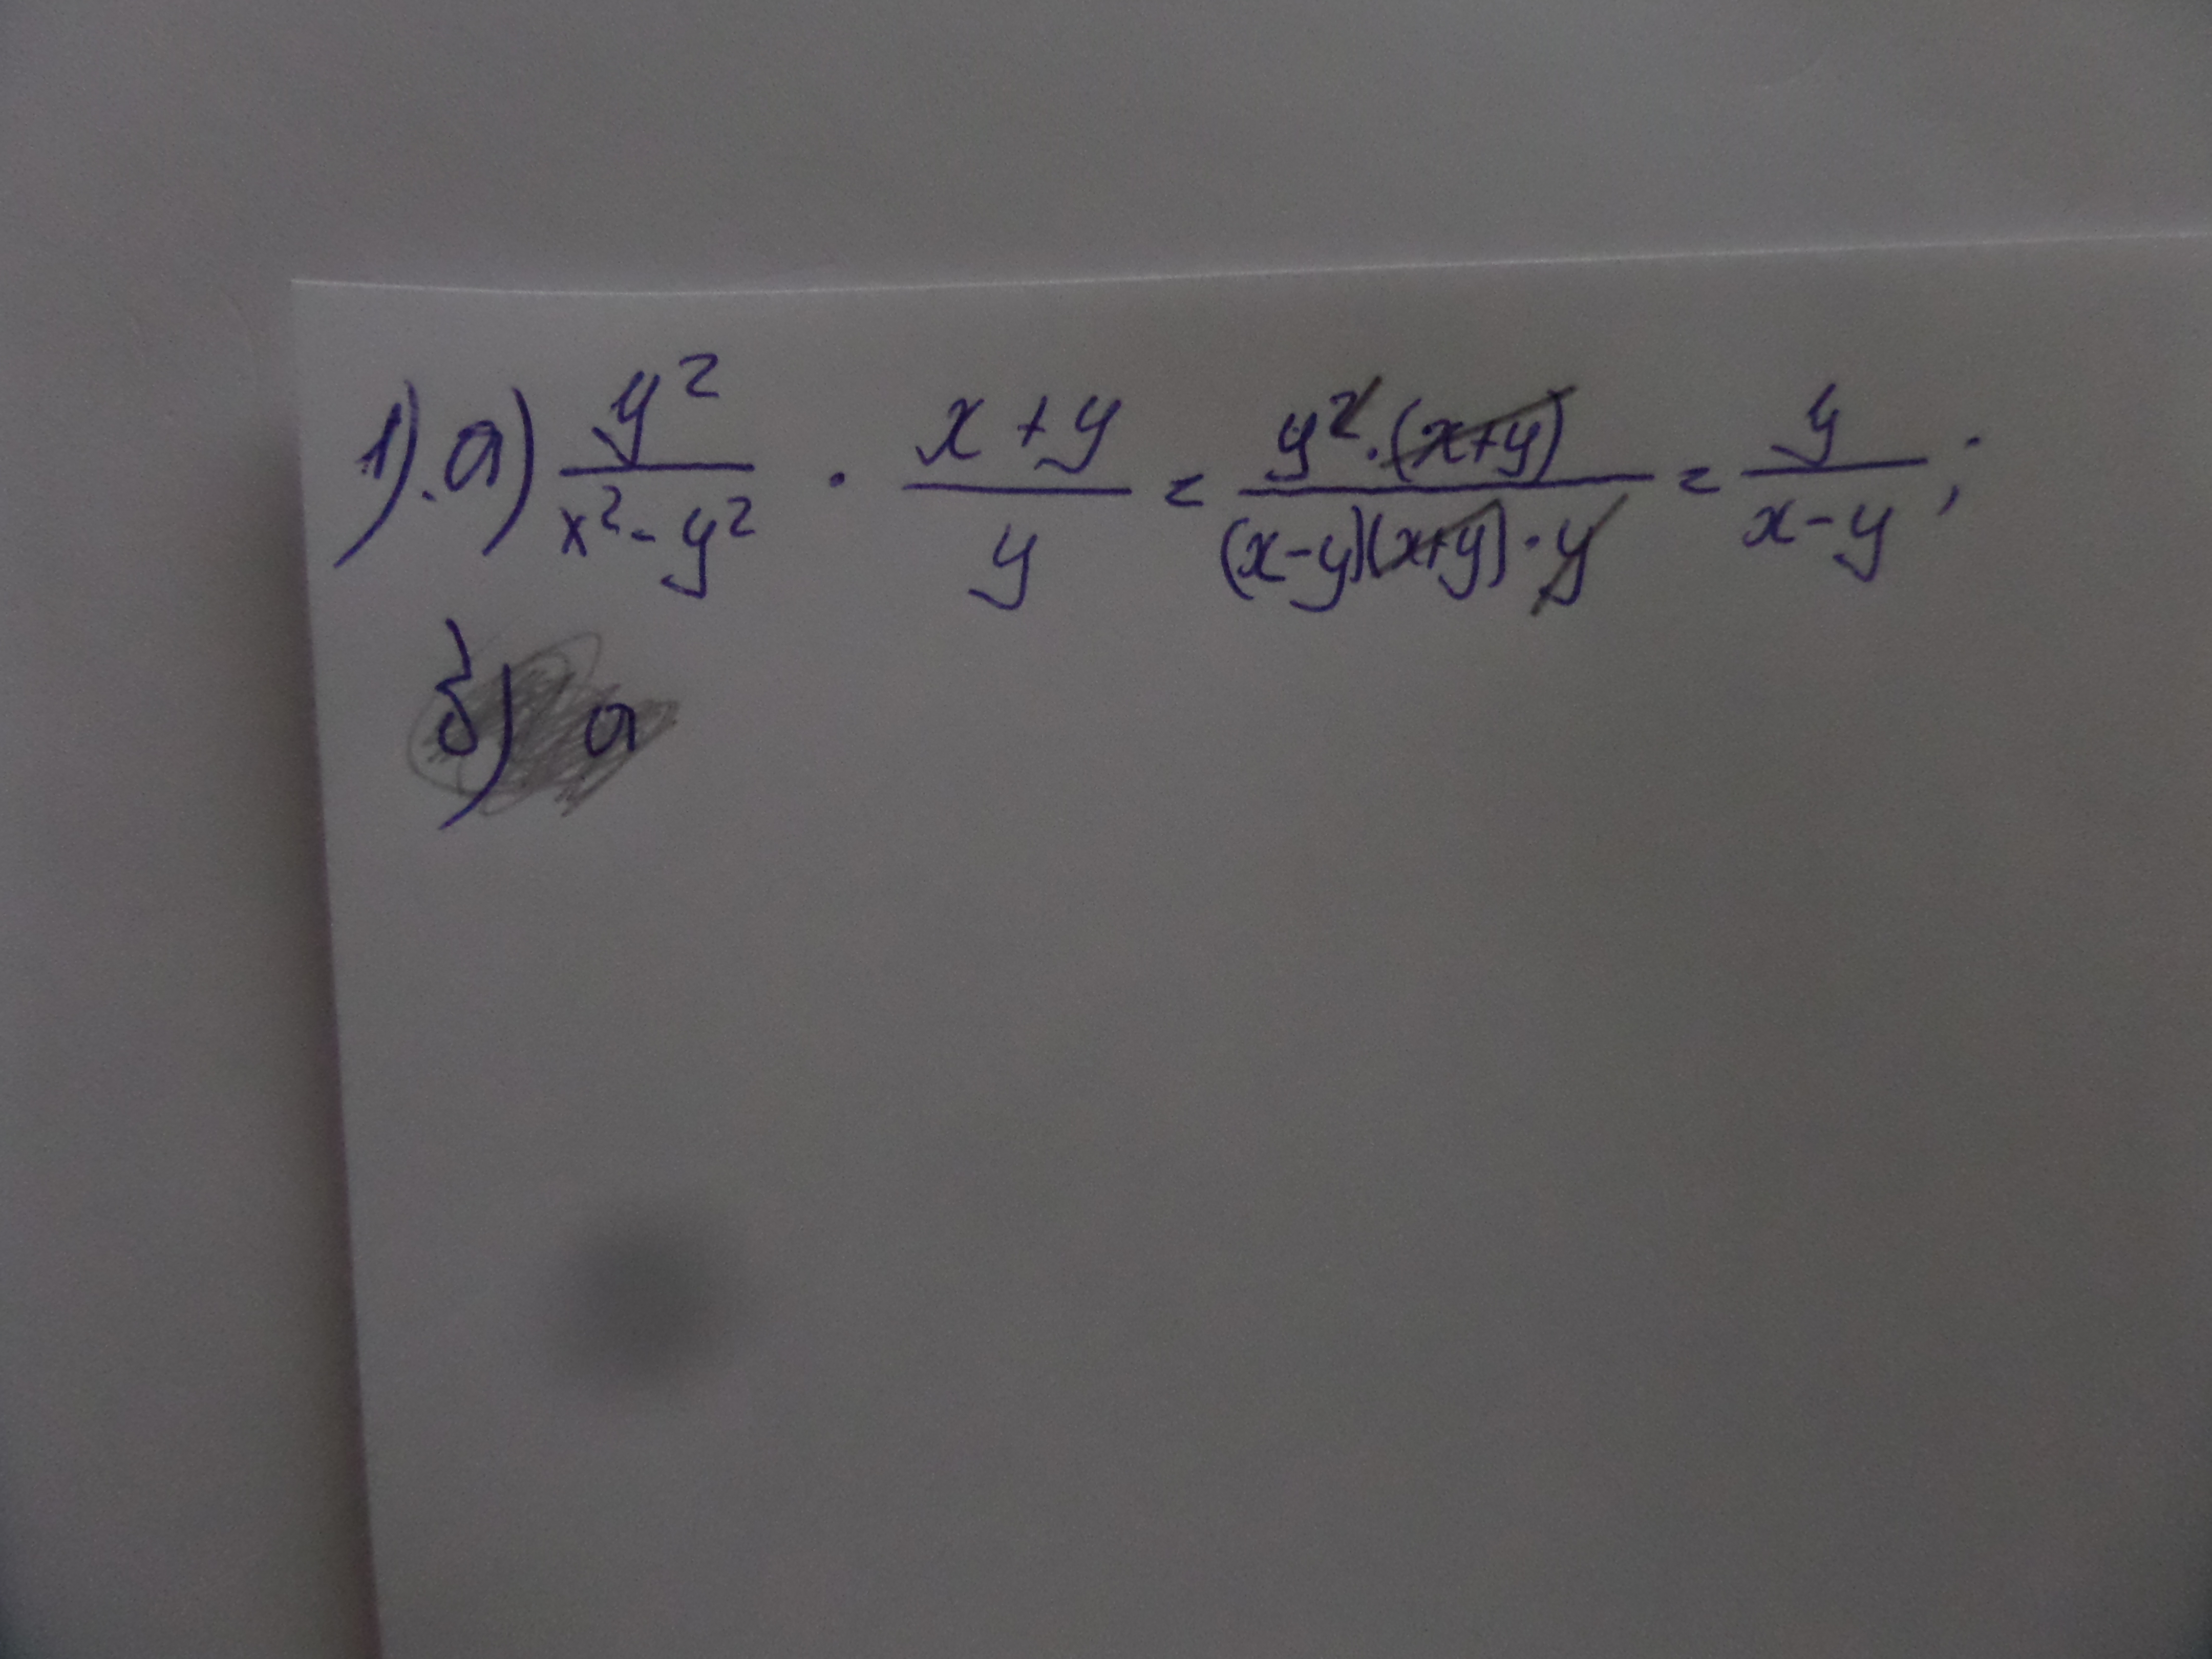 1). а) y²/(x² - y²) · (x + y)/y = y² · (x+y)/((x-y)(x+y) · y) = y/(x - y);
б) а